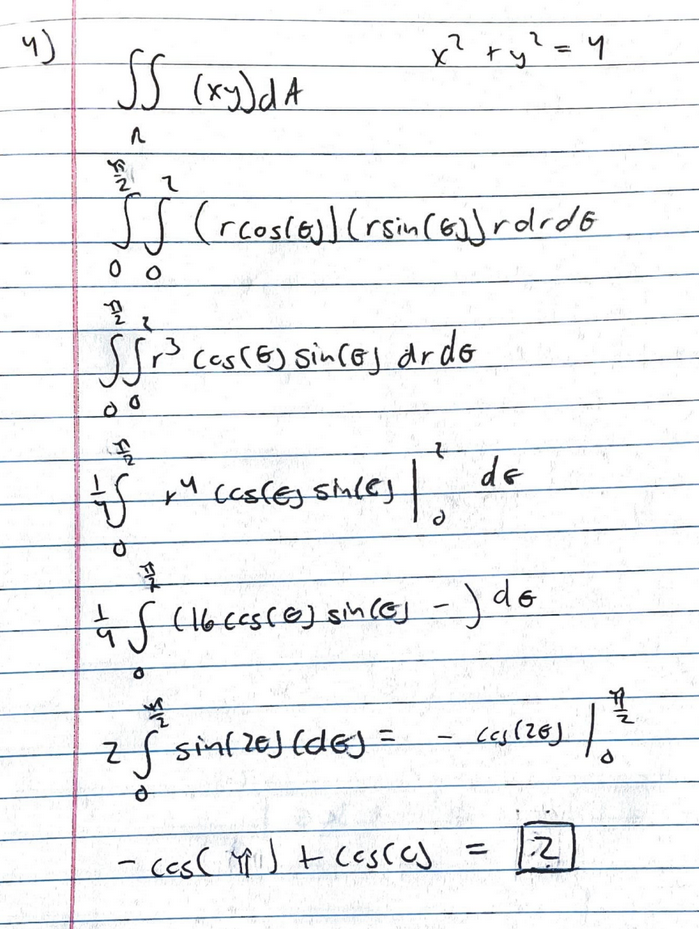 4) x² + y² = 4
∬ (xy)dA
R
∫₀^(π/2) ∫₀² (rcos(θ))(rsin(θ))rdrdθ
∫₀^(π/2) ∫₀² r³ cos(θ)sin(θ) drdθ
1/4 ∫₀^(π/2) r⁴ cos(θ)sin(θ) |₀² dθ
1/4 ∫₀^(π/2) (16cos(θ)sin(θ) - ) dθ
2 ∫₀^(π/2) sin(2θ)(dθ) = - cos(2θ) |₀^(π/2)
- cos(π) + cos(0) = 2